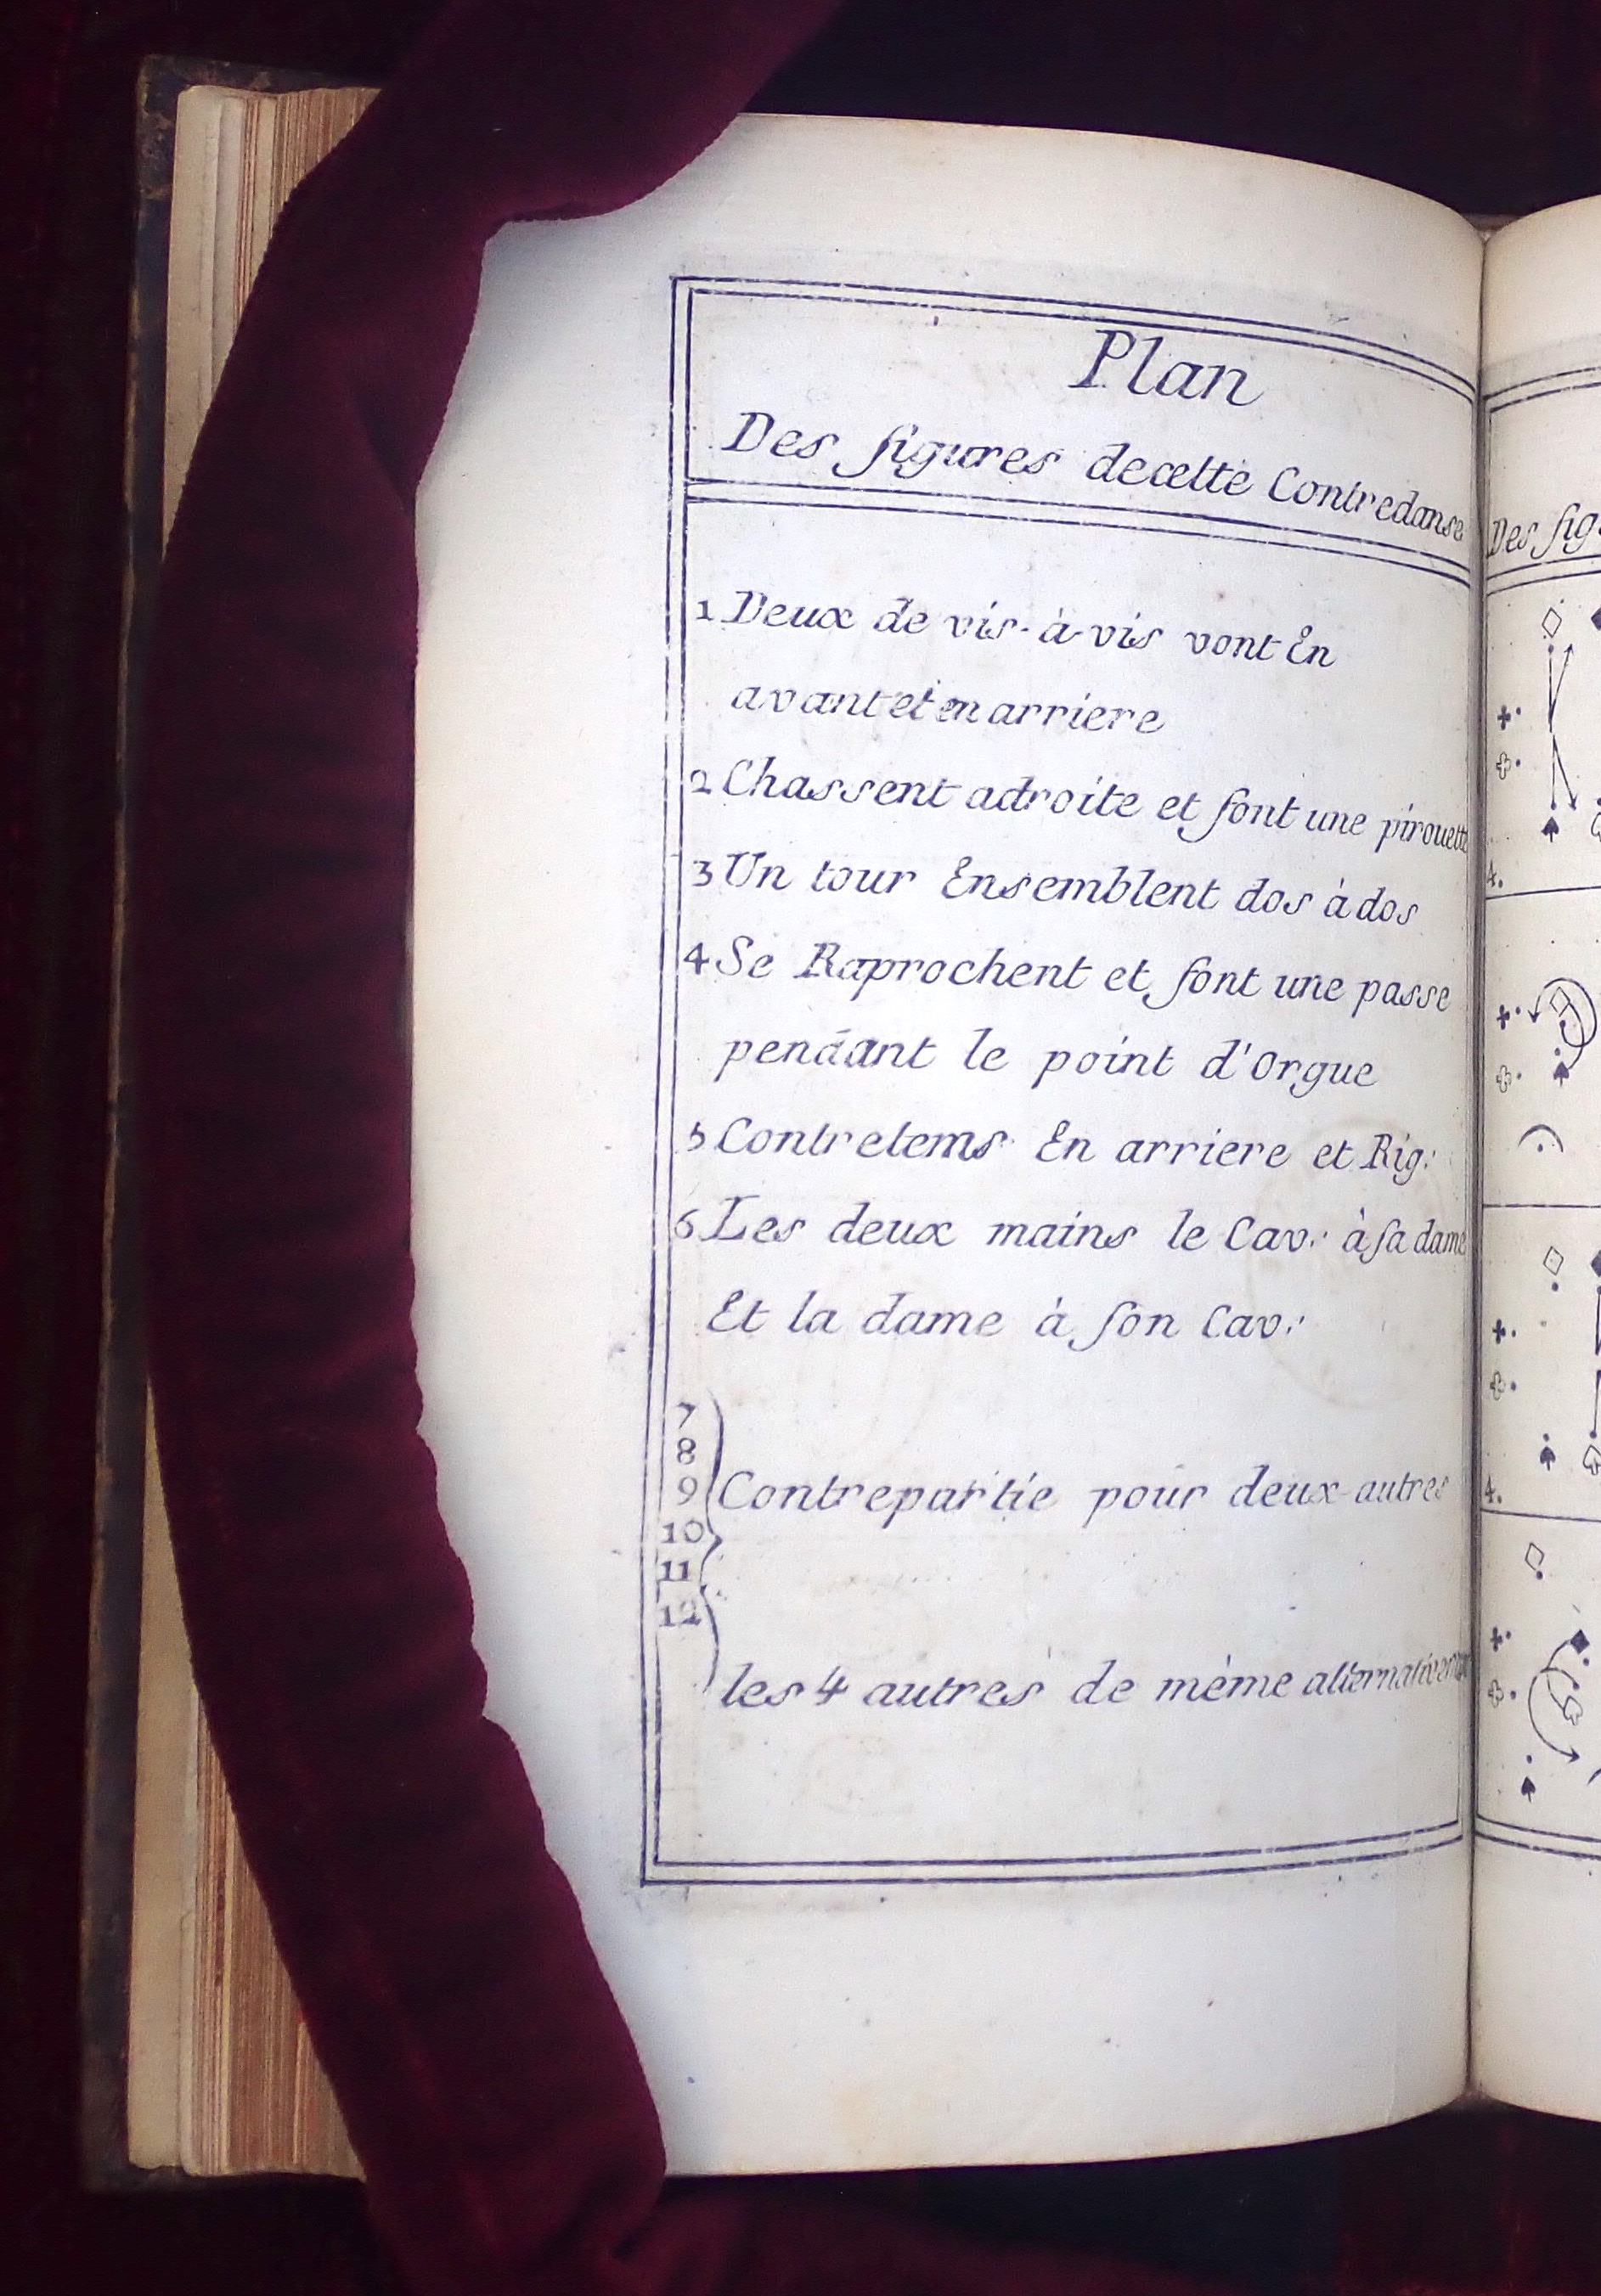 Plan
Des figures decette Contredanse
1 Deux de vis-à-vis vont En
avant et en arriere
2 Chassent adroite et font une pirouette
3 Un tour Ensemblent dos à dos
4 Se Raprochent et font une passe
pendant le point d'Orgue
5 Contretems En arriere et Rig:
6 Les deux mains le Cav: à sa dame
Et la dame à son Cav:
7
8
9 Contrepartie pour deux autres
10
11
12
les 4 autres de même
Des fig
4.
4.